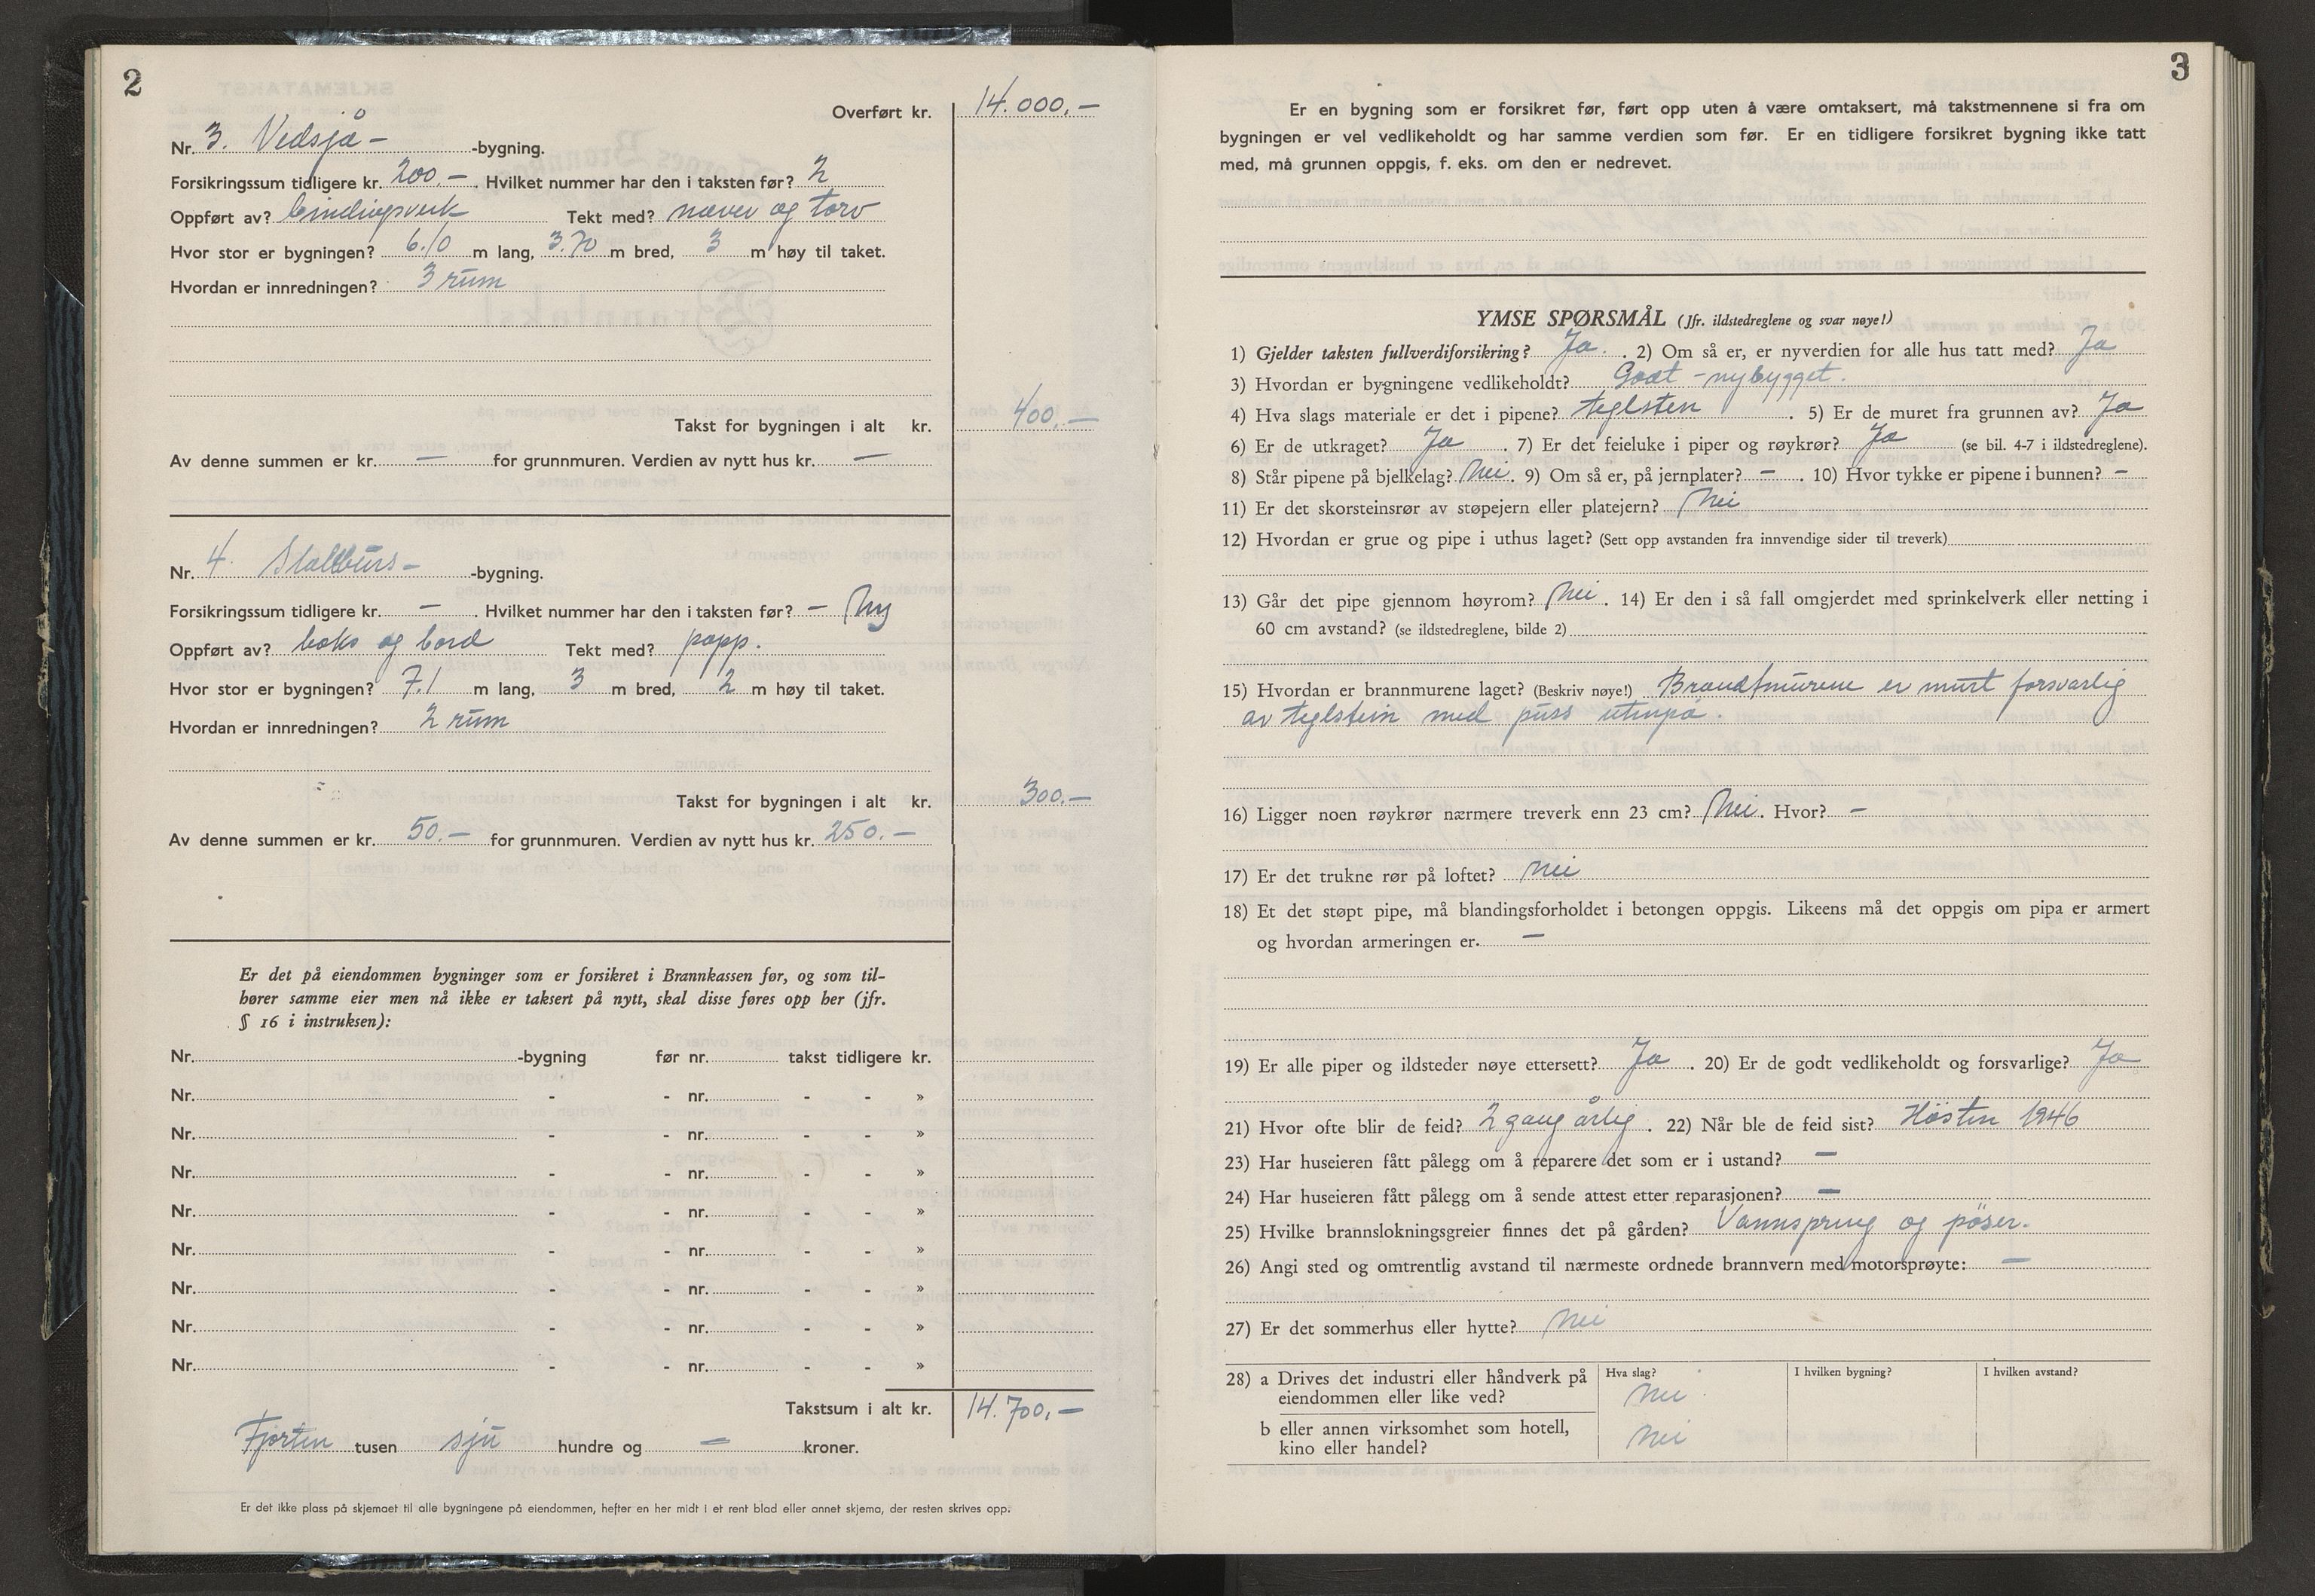 2
Overført kr. 14.000,-
Nr. 3. Vedsjå- -bygning.
Forsikringssum tidligere kr. 200.- . Hvilket nummer har den i taksten før? 2
Oppført av? bindingsverk Tekt med? never og torv
Hvor stor er bygningen? 6.10 m lang, 3.70 m bred, 3 m høy til taket.
Hvordan er innredningen? 3 rum
Takst for bygningen i alt kr. 400,-
Av denne summen er kr. — for grunnmuren. Verdien av nytt hus kr. —
Nr. 4. -bygning.
Forsikringssum tidligere kr. — . Hvilket nummer har den i taksten før? — Ny
Oppført av? boks og bord Tekt med? papp.
Hvor stor er bygningen? 7.1 m lang, 3 m bred, 2 m høy til taket.
Hvordan er innredningen? 2 rum
Takst for bygningen i alt kr. 300.-
Av denne summen er kr. 50.- for grunnmuren. Verdien av nytt hus kr. 250.-
Er det på eiendommen bygninger som er forsikret i Brannkassen før, og som til-
hører samme eier men nå ikke er taksert på nytt, skal disse føres opp her (jfr.
§ 16 i instruksen):
Nr. -bygning før nr. takst tidligere kr.
Nr. - - nr. - - »
Nr. - - nr. - - »
Nr. - - nr. - - »
Nr. - - nr. - - »
Nr. - - nr. - - »
Nr. - - nr. - - »
Nr. - - nr. - - »
Nr. - - nr. - - »
Takstsum i alt kr. 14.700,-
Fjorten tusen sju hundre og — kroner.
Er det ikke plass på skjemaet til alle bygningene på eiendommen, hefter en her midt i et rent blad eller annet skjema, der resten skrives opp.
3
Er en bygning som er forsikret før, ført opp uten å være omtaksert, må takstmennene si fra om
bygningen er vel vedlikeholdt og har samme verdien som før. Er en tidligere forsikret bygning ikke tatt
med, må grunnen oppgis, f. eks. om den er nedrevet.
YMSE SPØRSMÅL (Jfr. ildstedreglene og svar nøye!)
1) Gjelder taksten fullverdiforsikring? Ja. . 2) Om så er, er nyverdien for alle hus tatt med? Ja
3) Hvordan er bygningene vedlikeholdt? Godt - nybygget.
4) Hva slags materiale er det i pipene? teglsten . 5) Er de muret fra grunnen av? Ja
6) Er de utkraget? Ja . 7) Er det feieluke i piper og røykrør? Ja (se bil. 4-7 i ildstedreglene).
8) Står pipene på bjelkelag? Nei . 9) Om så er, på jernplater? — . 10) Hvor tykke er pipene i bunnen? —
11) Er det skorsteinsrør av støpejern eller platejern? Nei
12) Hvordan er grue og pipe i uthus laget? (Sett opp avstanden fra innvendige sider til treverk)
13) Går det pipe gjennom høyrom? Nei . 14) Er den i så fall omgjerdet med sprinkelverk eller netting i
60 cm avstand? (se ildstedreglene, bilde 2)
15) Hvordan er brannmurene laget? (Beskriv nøye!) Brandtmurene er murt forsvarlig
av teglstein med puss utenpå.
16) Ligger noen røykrør nærmere treverk enn 23 cm? Nei . Hvor? —
17) Er det trukne rør på loftet? Nei
18) Et det støpt pipe, må blandingsforholdet i betongen oppgis. Likeens må det oppgis om pipa er armert
og hvordan armeringen er. —
19) Er alle piper og ildsteder nøye ettersett? Ja . 20) Er de godt vedlikeholdt og forsvarlige? Ja
21) Hvor ofte blir de feid? 2 gang årlig . 22) Når ble de feid sist? Høsten 1946
23) Har huseieren fått pålegg om å reparere det som er i ustand? —
24) Har huseieren fått pålegg om å sende attest etter reparasjonen? —
25) Hvilke brannslokningsgreier finnes det på gården? Vannspring og pøser.
26) Angi sted og omtrentlig avstand til nærmeste ordnede brannvern med motorsprøyte: —
27) Er det sommerhus eller hytte? Nei
28) a Drives det industri eller håndverk på Hva slag? I hvilken bygning? I hvilken avstand?
eiendommen eller like ved? Nei
b eller annen virksomhet som hotell,
kino eller handel? Nei